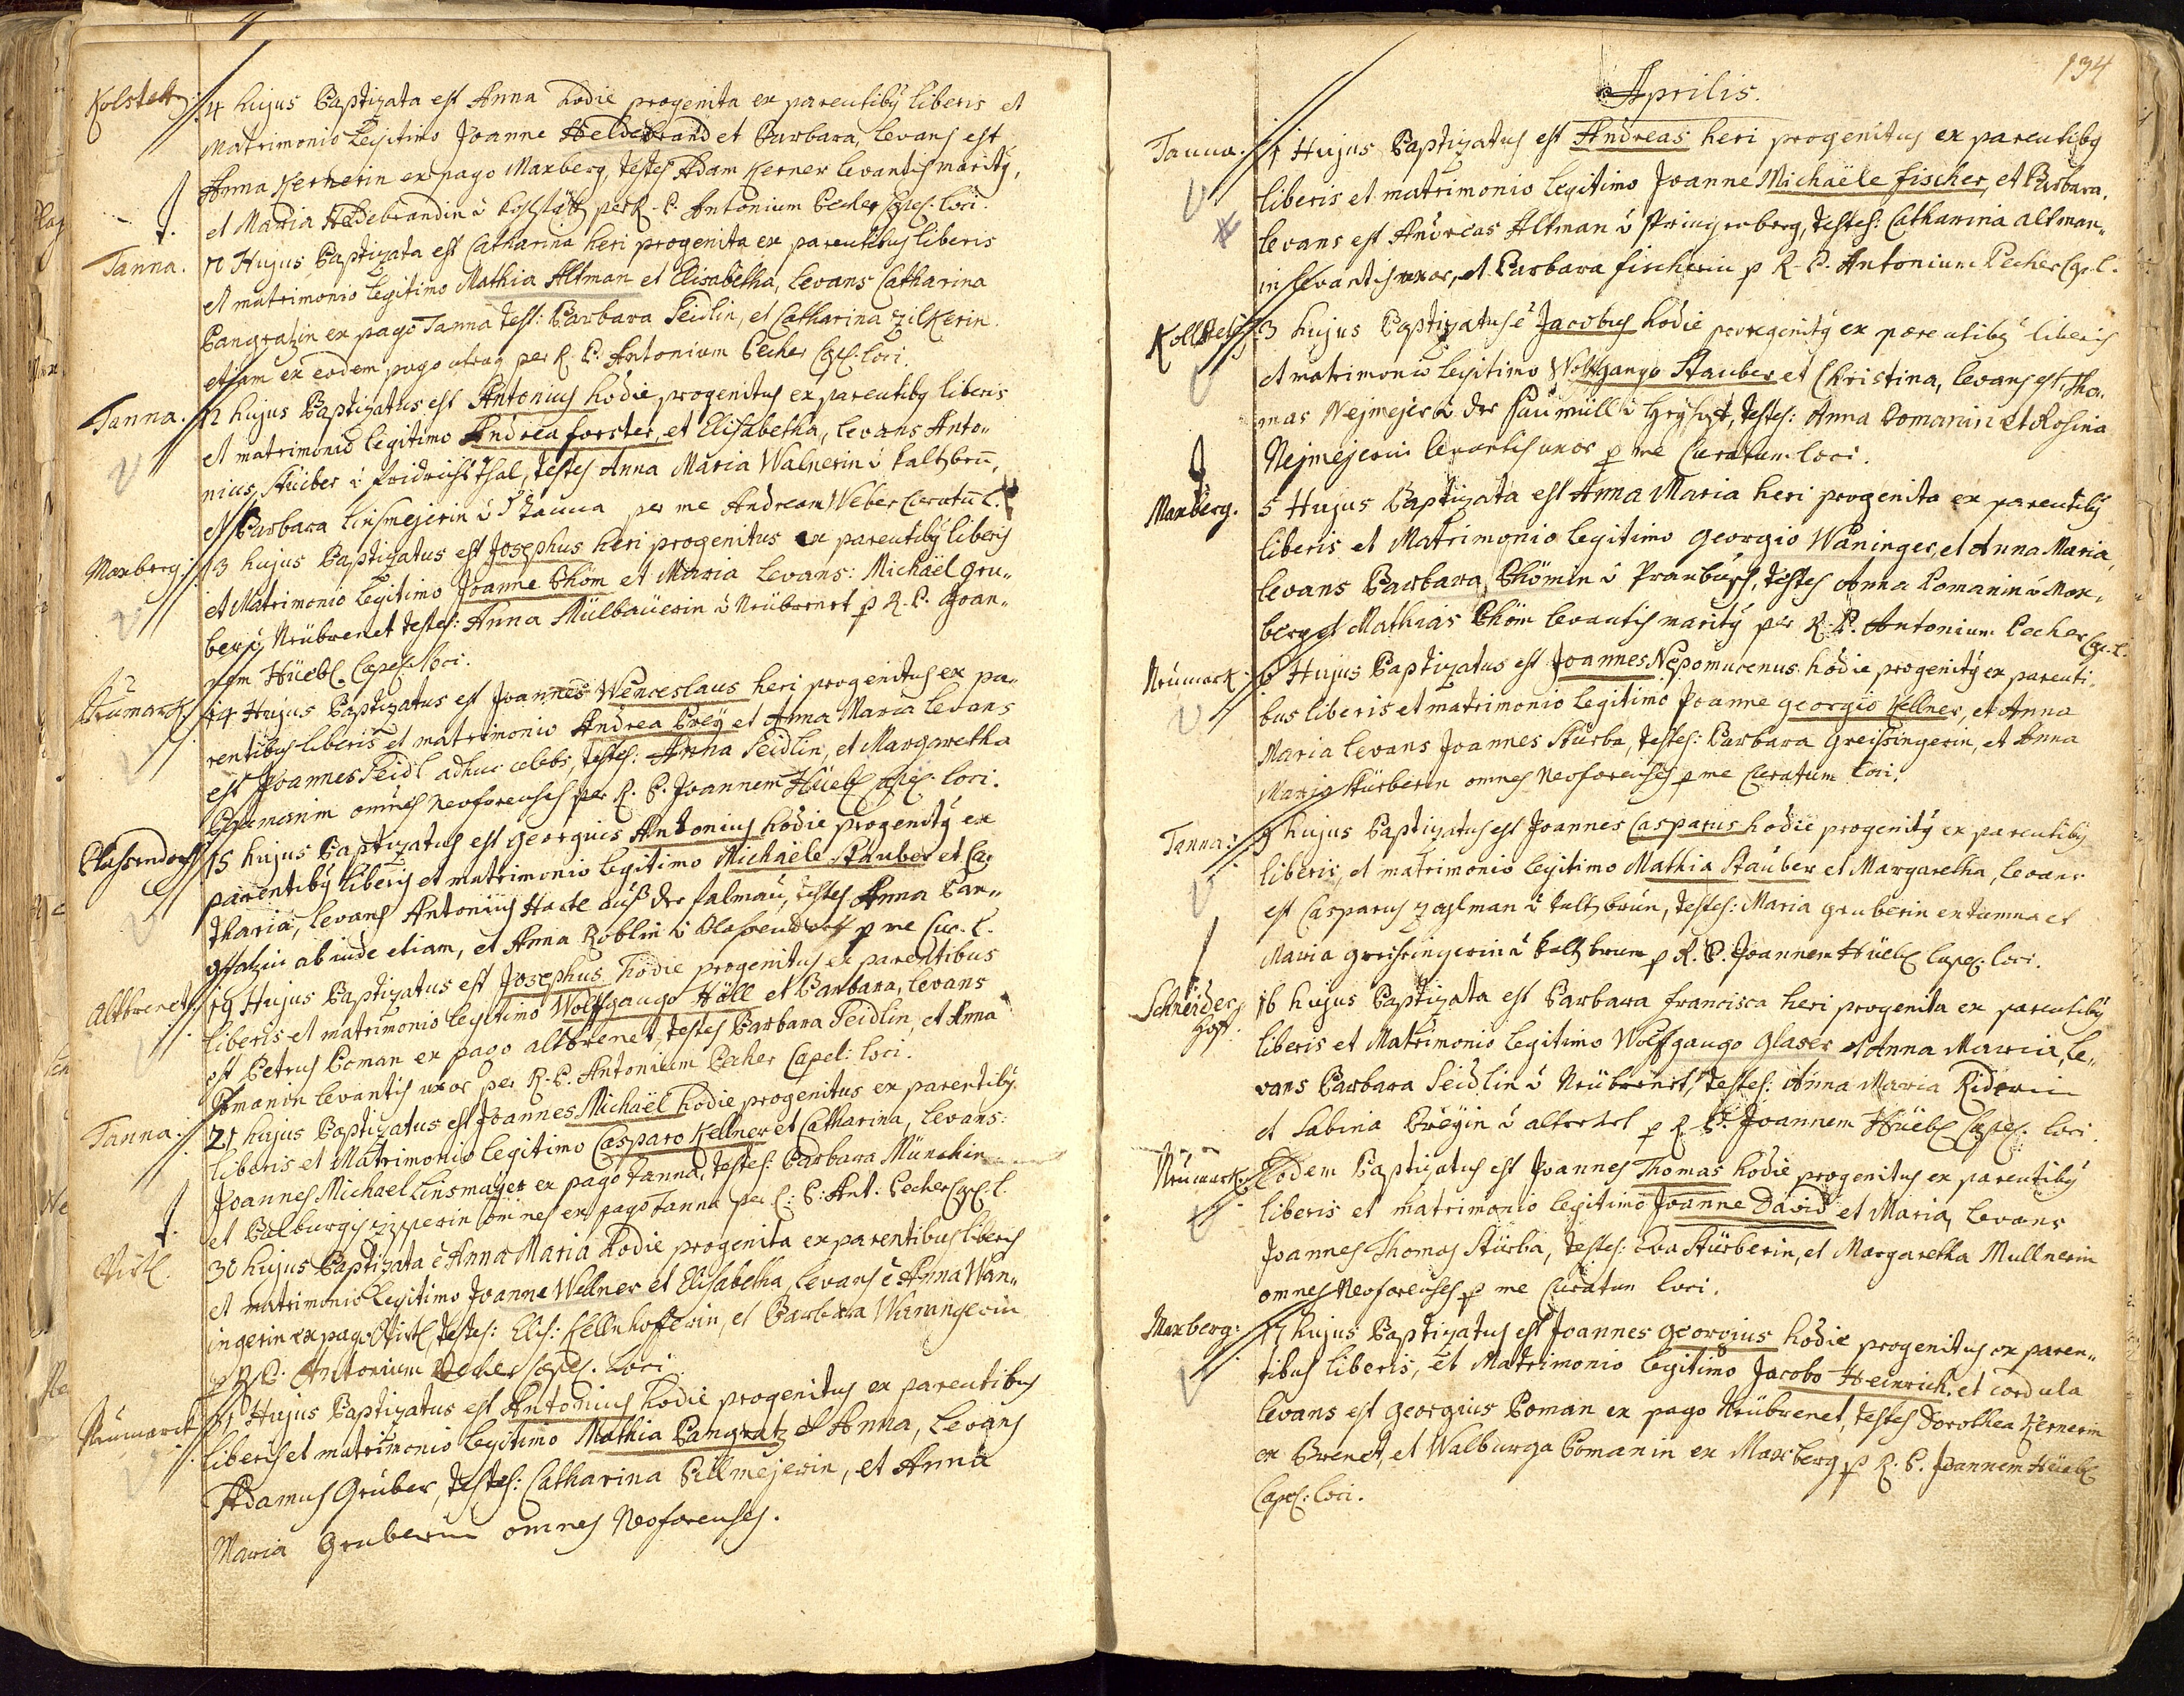 Kolstett: 4 hujus Baptizata est Anna hodie progenita ex parentibg liberis et
Matrimonio Legitimo Joanne Heldebrand et Barbara, levans est
Anna Kernerin ex pago Maxberg, testes Adam Kerner levantis maritg,
et Maria Heldebrandin per R. P. Antonium Pecher Capel: loci.
Tanna. 10 Hujus Baptizata est Catharina heri progenita ex parentibus liberis
et matrimonio legitimo Mathia Altman et Elisabetha, levans Catharina
Bangratzin ex pago Tanna test: Barbara Seidlin, et Catharina Zilkerin
etiam ex eodem pago per R. P. Antonium Pecher Cap: loci.
Tanna. 12 hujus Baptizatus est Antonius hodie progenitus ex parentibg liberis
et matrimonio legitimo Andrea forster, et Elisabetha, levans Anto„
nius Stüber fridrichsthal, testes Anna Maria Walnerin Kaltzbrun,
et Barbara Linsmejerin Tanna per me Andream Weber Curatu L.
Maxberg: 13 hujus Baptizatus est Josephus heri progenitus ex parentibg liberis
et Matrimonio legitimo Joanne Böhm et Maria Levans: Michaël Gru„
ber Neübrenet testes: Anna Mülbaüerin Neübrenet p R. P. Joan„
nem Hüebl Capel: loci.
Neümarck: 14 Hujus Baptizatus est Joannes Wenceslaus heri progenitus ex pa„
rentibus liberis et matrimonio Andrea Breÿ et Anna Maria levans
est Joannes Seidl adhuc celebs, testes: Anna Seidlin, et Margaretha
omnes neoforenses per R. P. Joannem Hüebl Capel: loci.
15 hujus Baptizatus est Georgius Antonius hodie progenitg ex
parentibg liberis et matrimonio legitimo Michaële Stauber et Ca„
tharia, levans Antonius auß der falmaü, testes Anna Ban„
gratzin ab inde etiam, et Anna Roblin p me Cur. L.
Altbrenet: 19 Hujus Baptizatus est Josephus hodie progenitus ex parentibus
liberis et matrimonio legitimo Wolffgango Höll et Barbara, levans
est Petrus Boman ex pago altbrenet, testes Barbara Seidlin, et Anna
Bomanin levantis uxor per R. P. Antonium Pecher Capel: loci.
Tanna: 21 hujus Baptizatus est Joannes Michaël hodie progenitus ex parentibg
liberis et Matrimonio legitimo Casparo Kellner et Catharina, levans:
Joannes Michael Linsmaÿer ex pago Tanna, testes: Barbara Münchin
et Balburgis omnes ex pago Tanna per R: P: Ant. Pecher Cap: l.
30 hujus Baptizata e Anna Maria hodie progenita ex parentibus liberis
et matrimonio legitimo Joanne Wellner et Elisabetha, levans e Anna Wan„
ingerin ex pago, testes: Elis: Kellnhofferin, et Barbara Waningerin
p R. P. Antonium Pecher Capel. loci
Neümarck 31 Hujus Baptizatus est Antonius hodie progenitus ex parentibus
liberis et matrimonio legitimo Mathia Bangratz et Anna, levans
Adamus Gruber, testes: Catharina Pillmejerin, et Anna
Maria Gruberin omnes Neoforenses.
134
Aprilis.
Tanna. 1 Hujus Baptizatus est Andreas heri progenitus ex parentibg
liberis et matrimonio legitimo Joanne Michaële fischer, et Barbara,
levans est Andreas Altman Springenberg, testes: Catharina altman„
in levantis uxor, et Barbara fischerin p R. P. Antonium Pecher Cap. l.
Kollstett: 3 hujus Baptizatus e Jacobus hodie progenitg ex parentibg liberis
et matrimonio legitimo Wolffgango Stauber et Christina, levans est Tho„
mas Nejmejer der Saümüll, testes: Anna Bomanin et Rosina
Nejmejerin levantis uxor p me Curatum loci.
Maxberg. 5 Hujus Baptizata est Anna Maria heri progenita ex parentibg
liberis et Matrimonio legitimo Georgio Waninger, et Anna Maria,
levans Barbara Böhmin, testes Anna Bomanin Max„
berg et Mathias Böhm levantis maritg per R. P. Antonium Pecher Cap. l.
Neümarck 6 Hujus Baptizatus est Joannes Nepomucenus hodie progenitg ex parenti„
bus liberis et matrimonio legitimo Joanne georgio Kellner, et Anna
Maria levans Joannes Stürba, testes: Barbara Greissingerin, et Anna
Maria Stürberin omnes Neoforenses p me Curatum loci.
Tanna: 9 hujus Baptizatus est Joannes Casparus hodie progenitg ex parentibg
liberis, et matrimonio legitimo Mathia Stauber et Margaretha, levans
est Casparus Zoglman Kaltzbrun, testes: Maria gruberin ex tanna et
Maria greissingerin Kaltzbrun p R. P. Joannem Hüebl Capel: loci.
Schneider hoff. 16 hujus Baptizata est Barbara francisca heri progenita ex parentibg
liberis et Matrimonio legitimo Wolffgango Glaser et Anna Maria, le„
vans Barbara Seidlin Neübrenet, testes: Anna Maria Riderin
et Sabina Breÿin p R. P. Joannem Hüebl Capel. loci.
Neümarck: Eodem Baptizatus est Joannes Thomas hodie progenitus ex parentibg
liberis et matrimonio legitimo Joanne David et Maria, levans
Joannes Thomas Stürba, testes: Eva Stürberin, et Margaretha Mullnerin
omnes Neoforenses p me Curatum loci.
Maxberg: 17 hujus Baptizatus est Joannes georgius hodie progenitus ex paren„
tibus liberis, et Matrimonio legitimo Jacobo Heinrich, et Cordula
levans est Georgius Boman ex pago Neübrenet, testes Dorothea Kernerin
ex Brenet, et Walburga Bomanin ex Maxberg p R. P. Joannem Hüebl
Capel: loci.